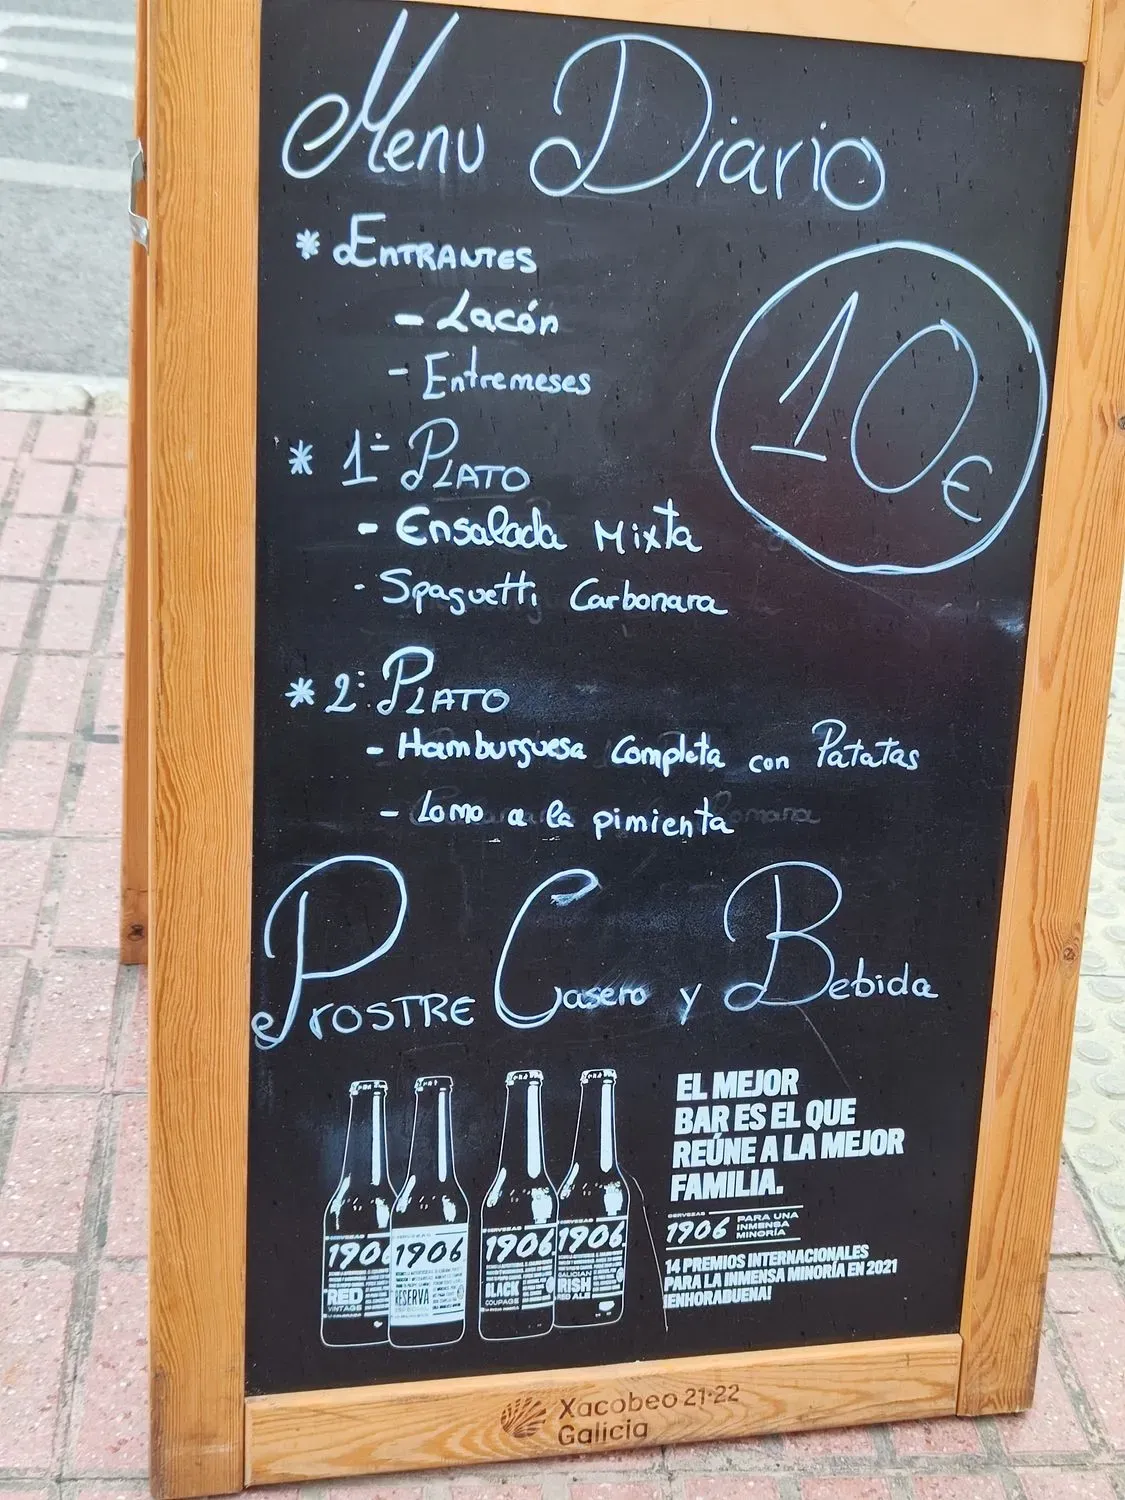 Menu Diario
* ENTRANTES
- Lacón
- Entremeses
10€
* 1º PLATO
- Ensalada Mixta
- Spaguetti Carbonara
* 2º PLATO
- Hamburguesa Completa con Patatas
- Lomo a la pimienta
PrOSTRE Casero y Bebida
CERVEZAS
1906
RED
VINTAGE
1906
RESERVA
CERVEZAS
1906
BLACK
COUPAGE
CERVEZAS
1906
IRISH
RED ALE
EL MEJOR
BAR ES EL QUE
REÚNE A LA MEJOR
FAMILIA.
CERVEZAS
1906
PARA UNA
INMENSA
MINORÍA
14 PREMIOS INTERNACIONALES
PARA LA INMENSA MINORÍA EN 2021
¡ENHORABUENA!
Xacobeo 21·22
Galicia